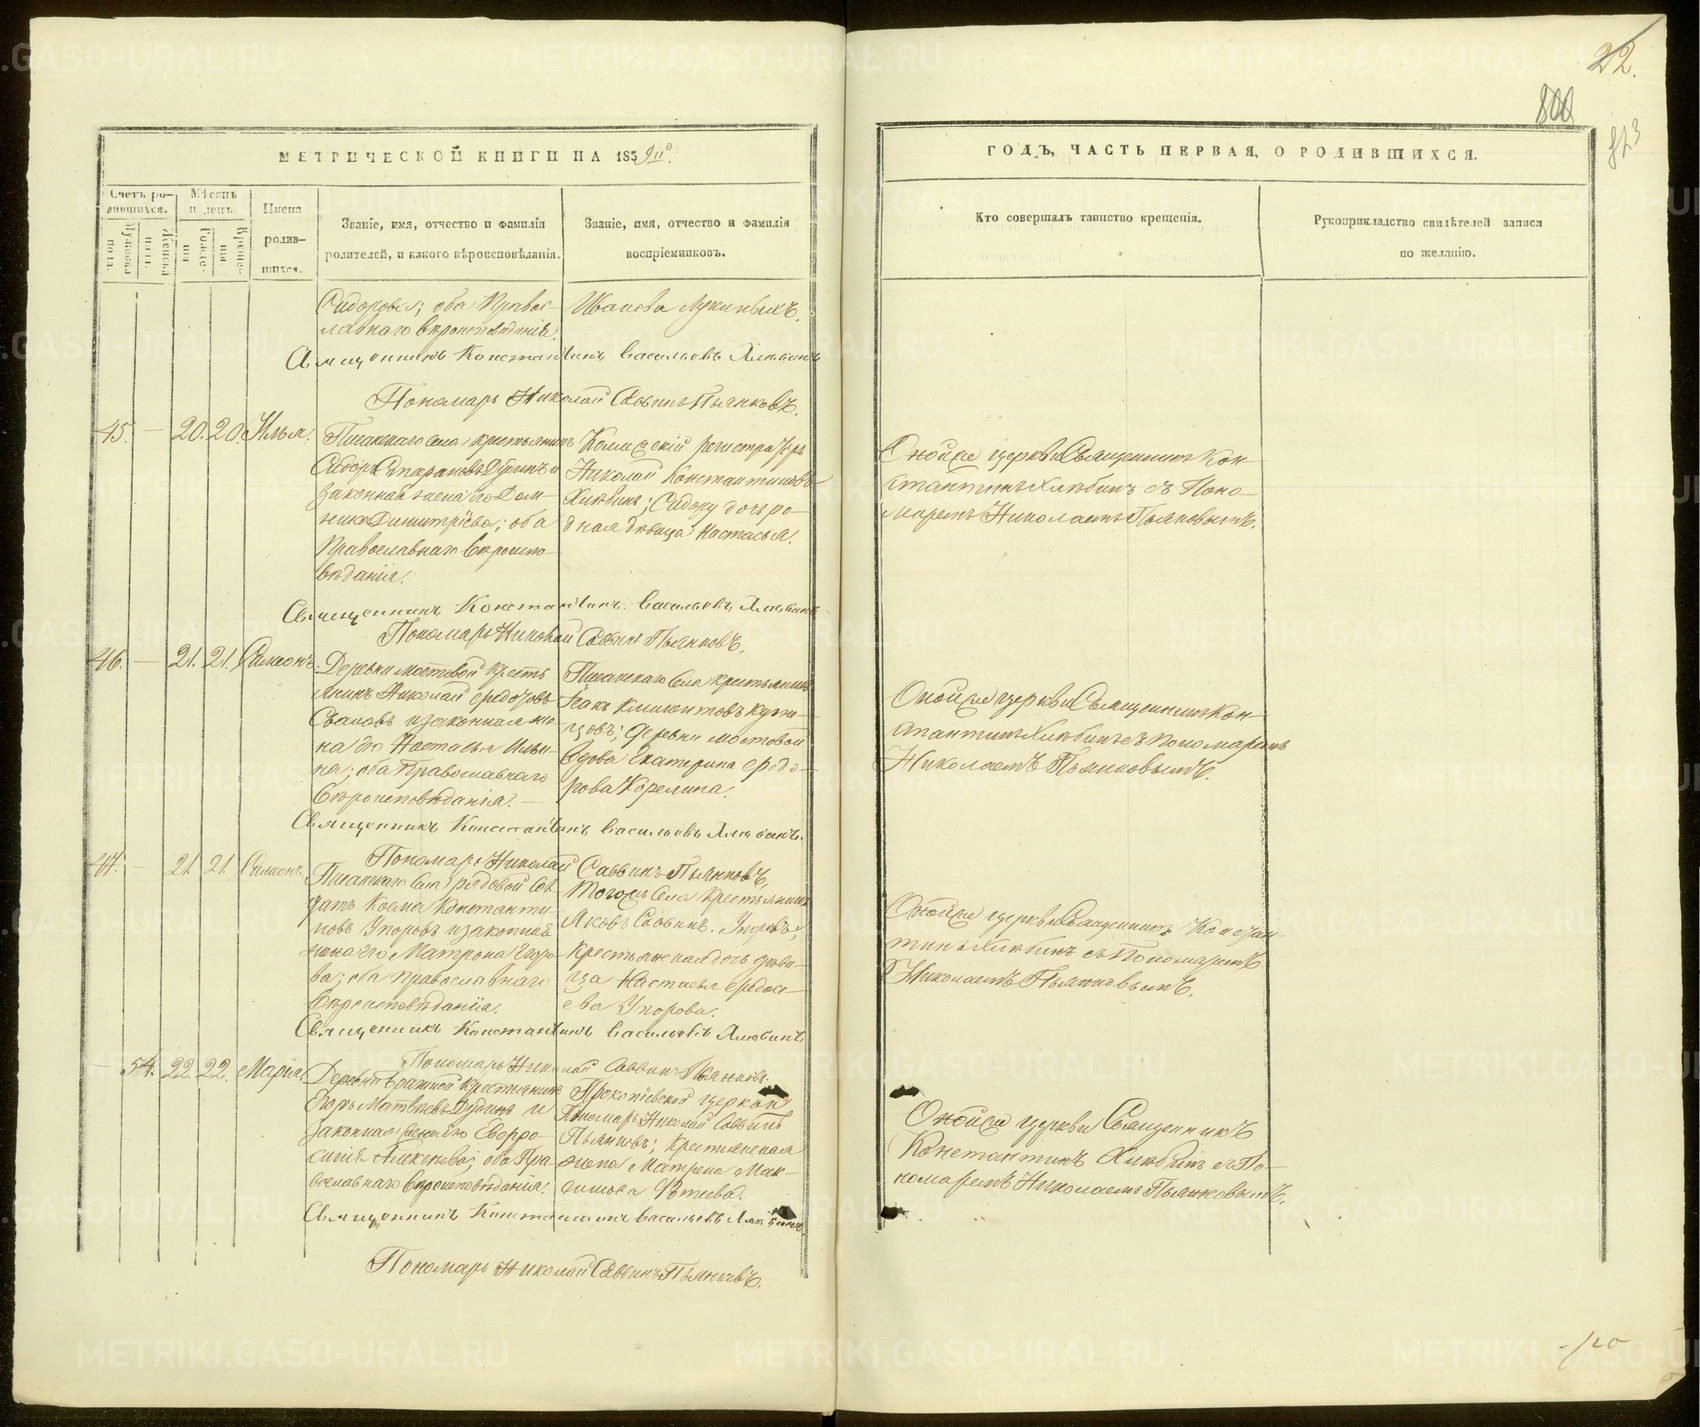 22.
800
813
МЕТРИЧЕСКОЙ КНИГИ НА 1859й
ГОДЪ, ЧАСТЬ ПЕРВАЯ, О РОДИВШИХСЯ.
Счетъ родившихся.
Мѣсяцъ и день.
Имена родившихся.
Званіе, имя, отчество и фамилія
родителей, и какого вѣроисповѣданія.
Званіе, имя, отчество и фамилія
воспріемниковъ.
Кто совершалъ таинство крещенія.
Рукоприкладство свидѣтелей записи
по желанію.
Мужеска пола.
Женска пола.
Рожденія
Крещенія
Сидорова; оба Правос-
лавнаго вѣроисповѣданія.
Иванова Лукиныхъ.
Священникъ Константинъ Васильевъ Хлѣбинъ
Пономарь Николай Саввинъ Пьянковъ.
45. — 20. 20. Илья.
Писанскаго села крестьянинъ
Сидоръ Дудинъ и
законная жена его Дом-
ника Димитріева; оба
Православнаго вѣроиспо-
вѣданія.
Коллежскій регистраторъ
Николай Константиновъ
Хлѣбинъ; Сидору дочь ро-
дная дѣвица Настасья.
Онойже церкви Священникъ Кон-
стантинъ Хлѣбинъ съ Поно-
маремъ Николаемъ Пьянковымъ.
Священникъ Константинъ Васильевъ Хлѣбинъ
Пономарь Николай Саввинъ Пьянковъ.
46. — 21. 21. Симеонъ.
Деревни Мостовой кресть-
янинъ Николай Ѳедотовъ
и законная же-
на его Настасья Ильи-
на; оба Православнаго
вѣроисповѣданія. —
Писанскаго села крестьянинъ
Климентовъ Кузне-
цовъ; деревни Мостовой
вдова Екатерина Ѳедо-
рова Корелина.
Онойже церкви Священникъ Кон-
стантинъ Хлѣбинъ съ Пономаремъ
Николаемъ Пьянковымъ.
Священникъ Константинъ Васильевъ Хлѣбинъ.
Пономарь Николай Саввинъ Пьянковъ.
47. — 21. 21. Симеонъ.
Писанскаго села рядовой сол-
датъ Козма Константи-
новъ Упоровъ и законная
жена его Матрона Егоро-
ва; оба Православнаго
вѣроисповѣданія.
Тогоже села крестьянинъ
Яковъ Саввинъ Упоровъ;
крестьянская дочь дѣви-
ца Настасья Ѳедосе-
ева Упорова.
Онойже церкви Священникъ Констан-
тинъ Хлѣбинъ съ Пономаремъ
Николаемъ Пьянковымъ.
Священникъ Константинъ Васильевъ Хлѣбинъ
Пономарь Николай Саввинъ Пьянковъ.
— 54. 22. 22. Марія.
Деревни крестьянинъ
Егоръ Матвѣевъ Дудинъ и
законная жена его Евфро-
синья Алексѣева; оба Пра-
вославнаго вѣроисповѣданія.
Прокопіевской церкви
Пономарь Николай Саввинъ
Пьянковъ; крестьянская
жена Матрена Мак-
симова Фотеева.
Онойже церкви Священникъ
Константинъ Хлѣбинъ съ По-
номаремъ Николаемъ Пьянковымъ.
Священникъ Константинъ Васильевъ Хлѣбинъ.
Пономарь Николай Саввинъ Пьянковъ.
METRIKI.GASO-URAL.RU